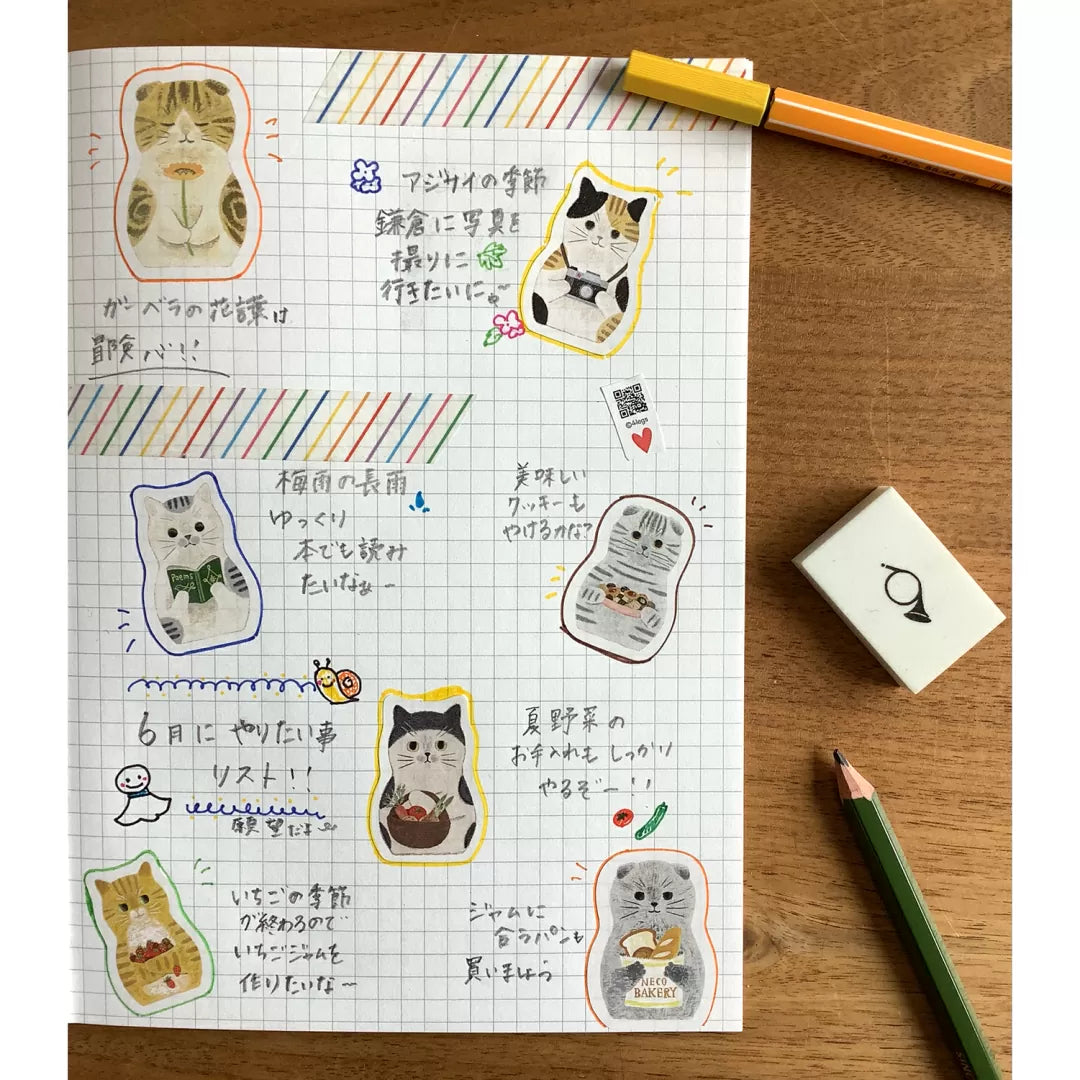 ガーベラの花言葉は
冒険心!!
アジサイの季節
鎌倉に写真を
撮りに
行きたいにゃ〜
©4legs
梅雨の長雨
ゆっくり
本でも読み
たいなぁー
Poems
美味しい
クッキーも
やけるかな?
6月にやりたい事
リスト!!
願望だよ
夏野菜の
お手入れもしっかり
やるぞー!!
いちごの季節
が終わるので
いちごジャムを
作りたいな〜
ジャムに
合うパンも
買いましょう
NECO
BAKERY